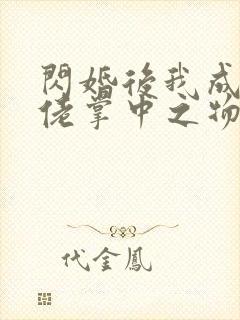 閃婚後我成
佬掌中之物
代金鳳